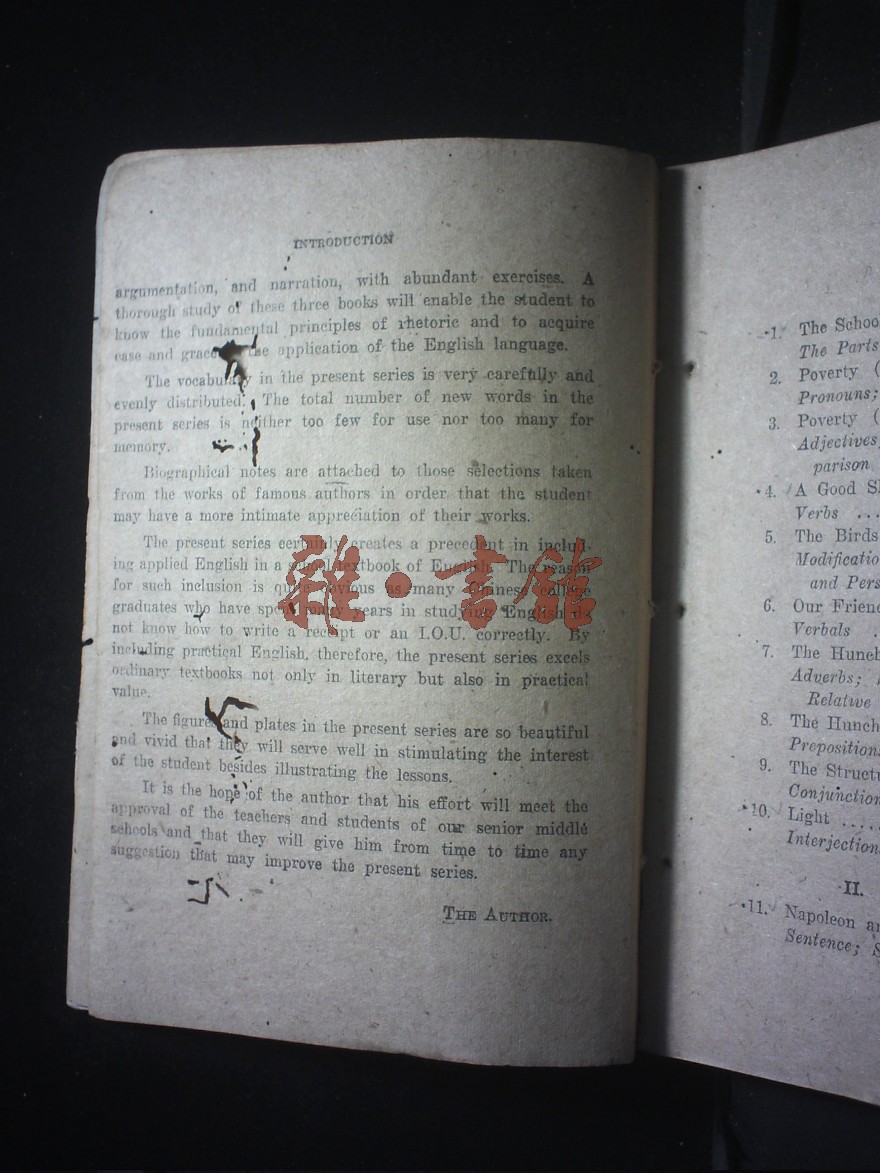 INTRODUCTION
argumentation, and narration, with abundant exercises. A
thorough study of these three books will enable the student to
know the fundamental principles of rhetoric and to acquire
ease and grace the application of the English language.
The vocabulary in the present series is very carefully and
evenly distributed. The total number of new words in the
present series is neither too few for use nor too many for
memory.
Biographical notes are attached to those selections taken
from the works of famous authors in order that the student
may have a more intimate appreciation of their works.
The present series certainly creates a precedent in includ-
ing applied English in a school textbook of English. The reason
for such inclusion is quite obvious as many Chinese college
graduates who have spent many years in studying English do
not know how to write a receipt or an I.O.U. correctly. By
including practical English, therefore, the present series excels
ordinary textbooks not only in literary but also in practical
value.
The figures and plates in the present series are so beautiful
and vivid that they will serve well in stimulating the interest
of the student besides illustrating the lessons.
It is the hope of the author that his effort will meet the
approval of the teachers and students of our senior middle
schools and that they will give him from time to time any
suggestion that may improve the present series.
THE AUTHOR.
雜·書館
1. The Schoo
The Parts
2. Poverty (
Pronouns;
3. Poverty (
Adjectives,
parison
4. A Good S
Verbs ...
5. The Birds
Modificatio
and Pers
6. Our Frien
Verbals .
7. The Hunch
Adverbs;
Relative
8. The Hunch
Prepositions
9. The Struct
Conjunction
10. Light ....
Interjection
II.
11. Napoleon a
Sentence; S